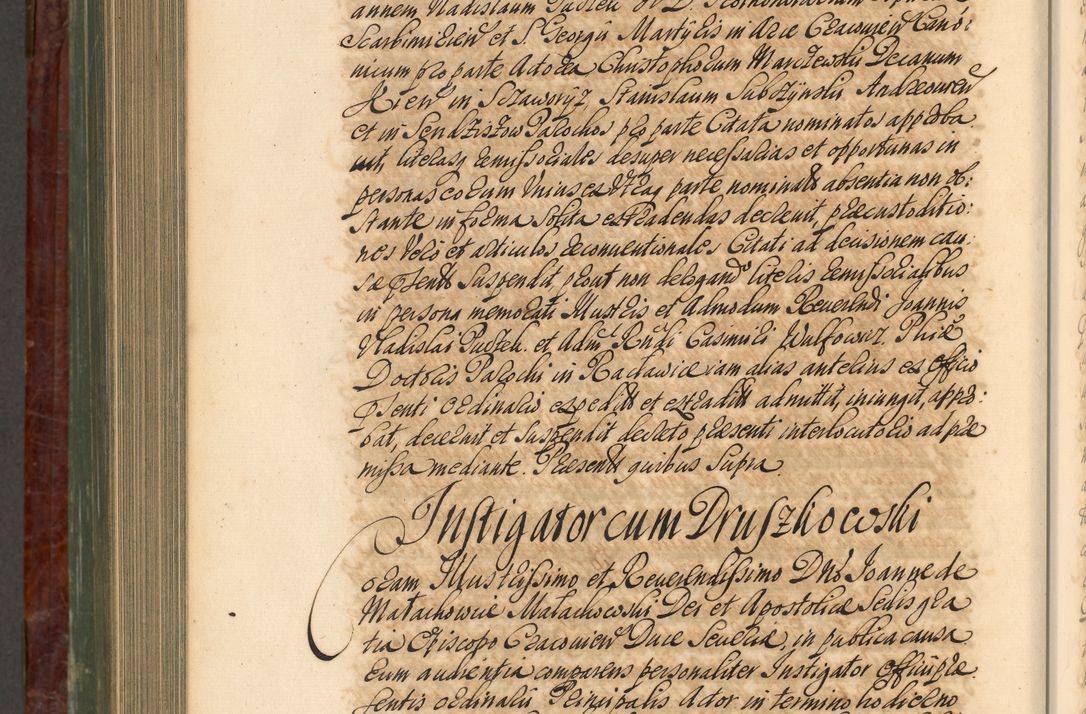 annem Vladislaum Pudłek
Scarbimirien et S. Georgii Martyris in Arce Cracovien Cano:
nicum pro parte Actorea Christophorum Marczewski Decanum
Xien in Sczaworyz, Stanislaum Subczynski Andreovien
et in Sendziszow Parochos pro parte Citata nominatos approba
uit, literasq remissoriales desuper necessarias et opportunas in
personas eorum unius ex utraq parte nominator absentia non ob:
stante in forma solita extradendas decreuit, præcustoditio:
nes vero et articulos reconventionales Citati ad decisionem cau:
sæ pñtis suspendit, prout non derogando literis remissorialibus
in persona memorati Illustris et Admodum Reverendi Joannis
Vladislai Pudłek. et Adm Rndi Casimiri Wulfowicz Phiæ
Doctoris Parochi in Racławice iam alias anterius ex officio
pñsenti ordinario expeditis et extraditis admittit, iniungit, appro:
bat, decreuit et suspendit decreto præsenti interlocutorio ad præ
missa mediante. Præsentibus quibus supra.
Instigator cum Druszkowski
Coram Illustrissimo et Reverendissimo Dno Joanne de
Małachowice Małachowski Dei et Apostolicæ Sedis gra
tia Episcopo Cracovien Duce Severiæ, in publica causa
rum audientia comparens personaliter Instigator Officii præ
sentis ordinarii Principalis Actor in termino hodierno